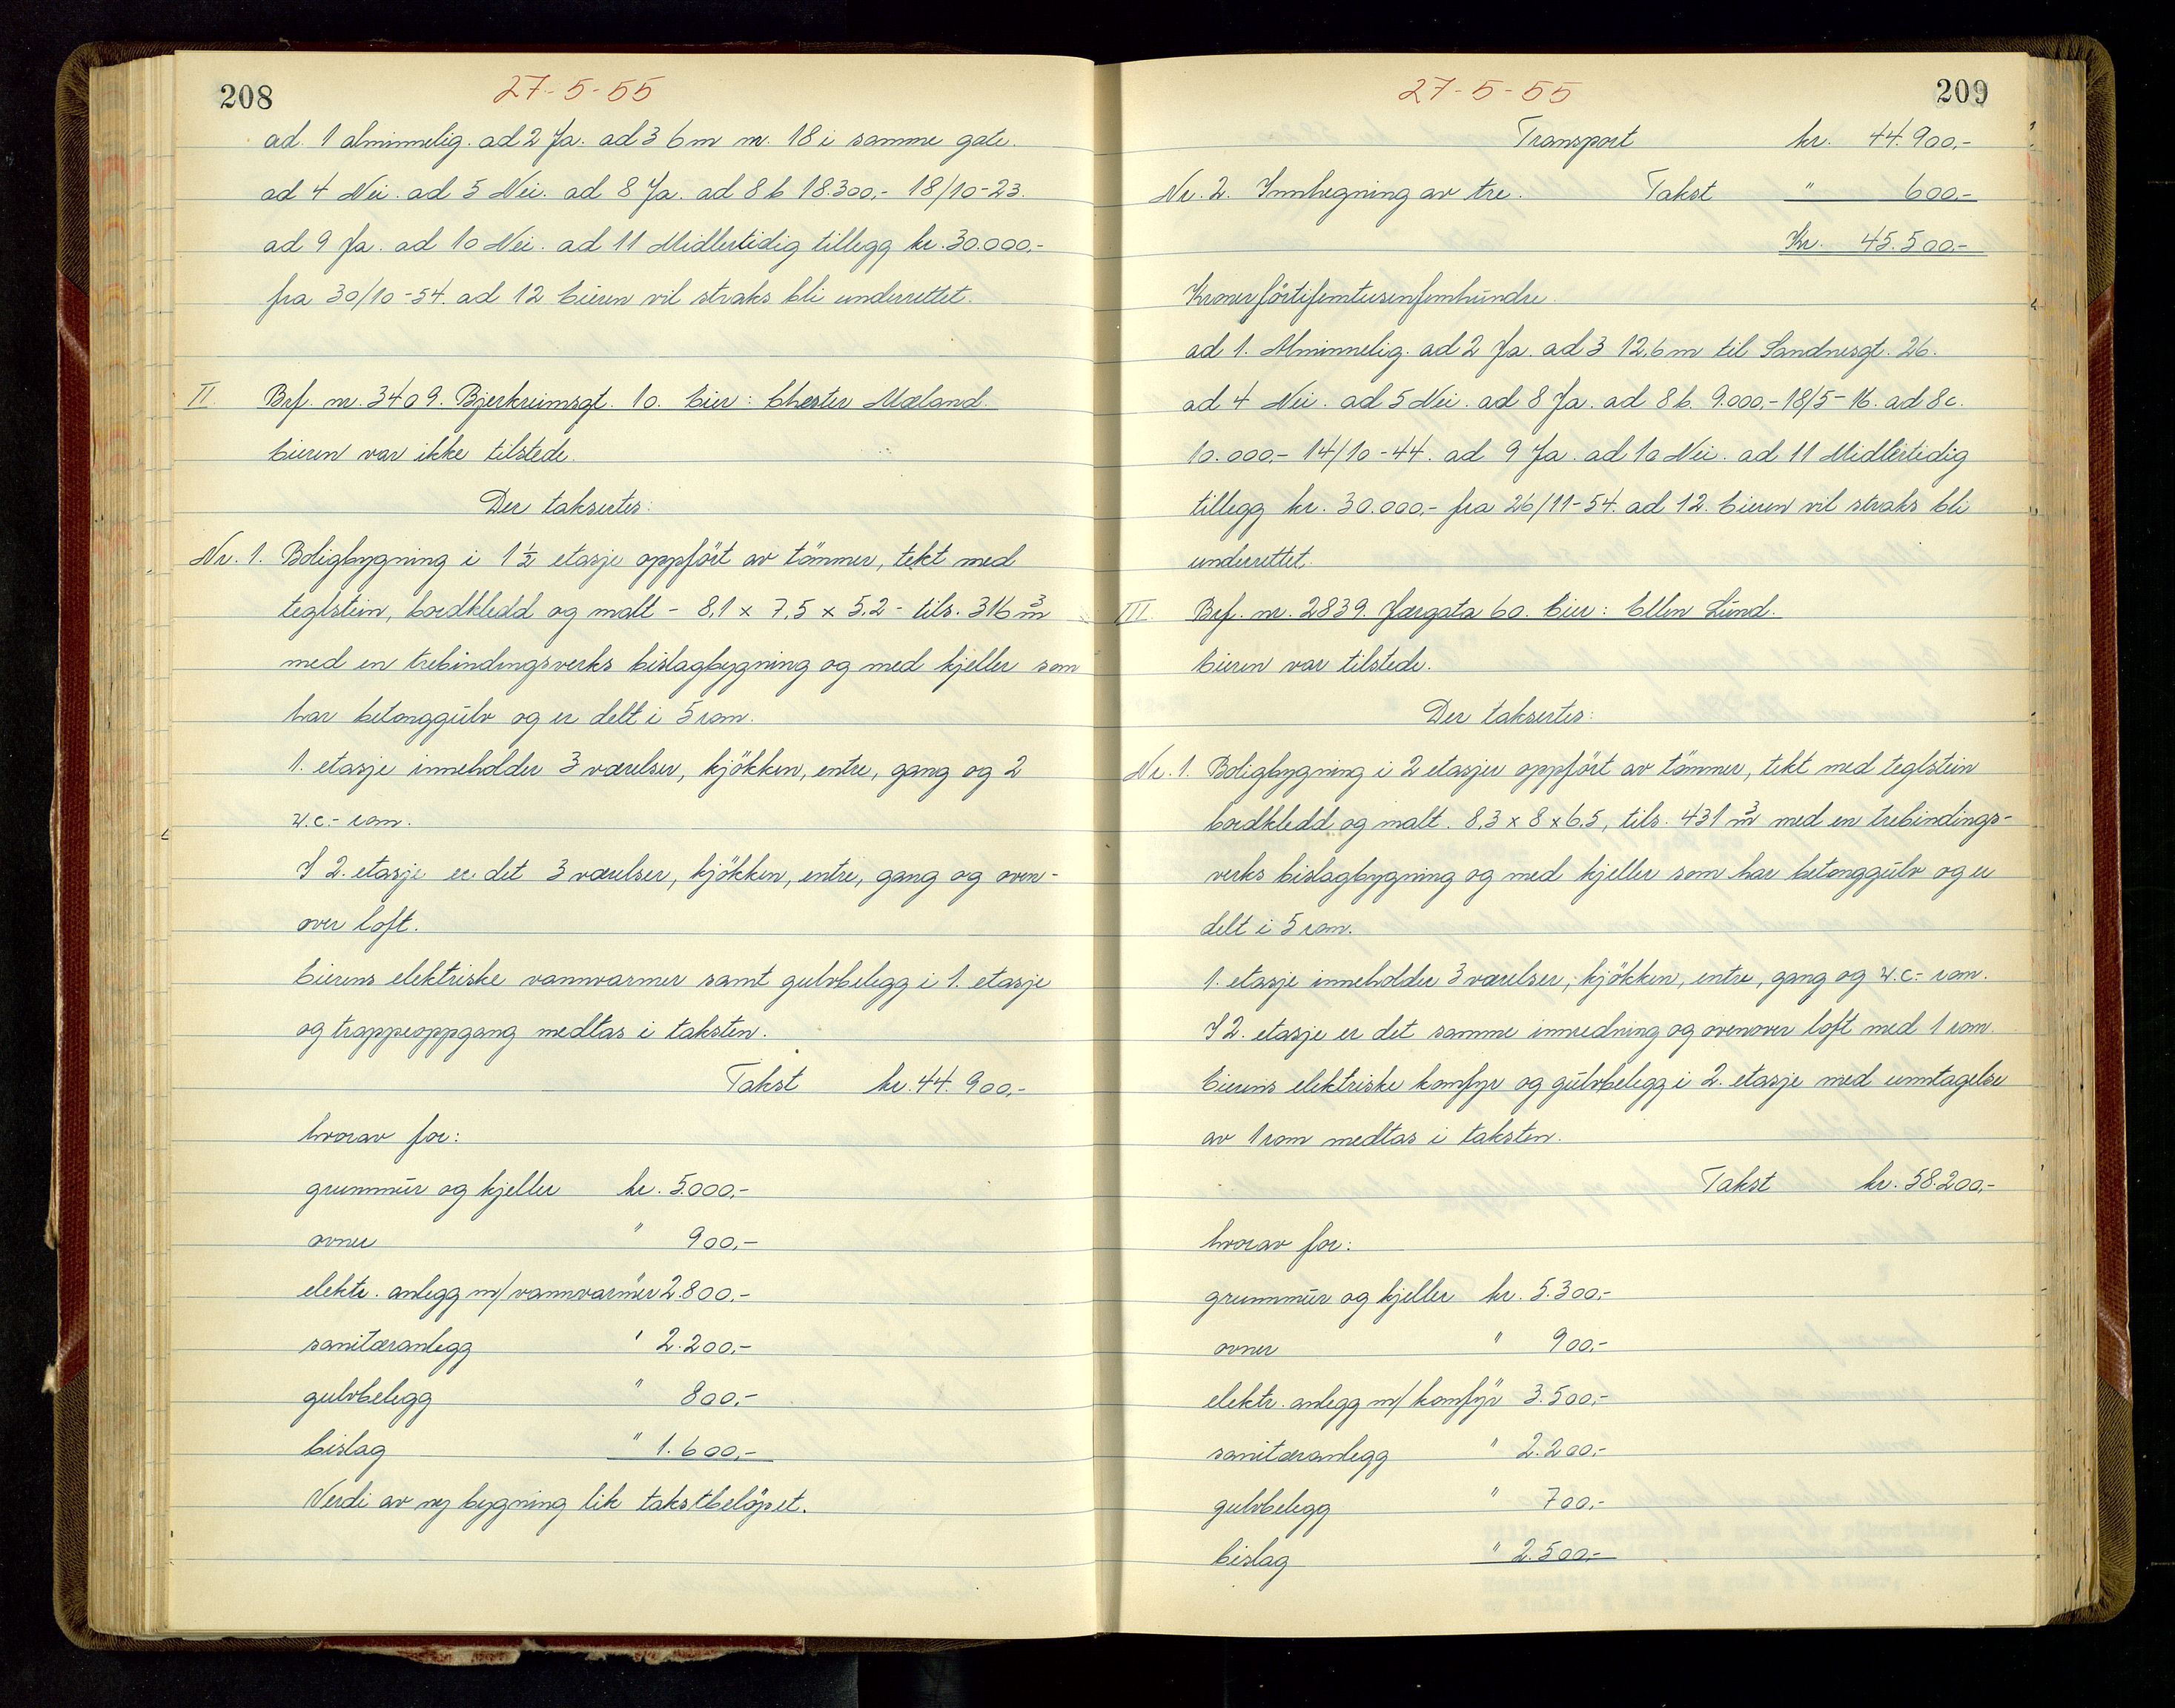 208
27-5-55
ad. 1 alminnelig. ad 2 Ja. ad 3 6 m nr. 18 i samme gate.
ad 4 Nei. ad 5 Nei. ad 8 Ja. ad 8 b 18.300,- 18/10-23.
ad 9 Ja. ad 10 Nei. ad 11 Midlertidig tillegg kr. 30.000,-
fra 30/10-54. ad 12 Eieren vil straks bli underrettet.
II. Brf. nr. 3409. Bjerkreimsgt. 10. Eier: Chester Mæland.
Eieren var ikke tilstede.
Der taksertes:
Nr. 1. Boligbygning i 1 ½ etasje oppfört av tömmer, tekt med
teglstein, bordkledd og malt - 8,1 x 7,5 x 5,2 - tils. 316 m³
med en trebindingsverks bislagbygning og med kjeller som
har betonggulv og er delt i 5 rom.
1. etasje inneholder 3 værelser, kjökken, entre, gang og 2
w.c.- rom.
I 2. etasje er det 3 værelser, kjökken, entre, gang og oven-
over loft.
Eierens elektriske vannvarmer samt gulvbelegg i 1. etasje
og trappeoppgang medtas i taksten.
Takst kr. 44.900,-
hvorav for:
grunnmur og kjeller kr. 5.000,-
ovner " 900,-
elektr. anlegg m/vannvarmer 2.800,-
sanitæranlegg " 2.200,-
gulvbelegg " 800,-
bislag " 1.600,-
Verdi av ny bygning lik takstbelöpet.
27-5-55
209
Transport kr. 44.900,-
Nr. 2. Innhegning av tre. Takst " 600,-
Kr. 45.500,-
Kroner förtifemtusenfemhundre.
ad 1. Alminnelig. ad 2 Ja. ad 3 12,6 m til Sandnesgt. 26.
ad 4 Nei. ad 5 Nei. ad 8 Ja. ad 8 b. 9.000,- 18/5-16. ad 8c.
10.000,- 14/10-44. ad 9 Ja. ad 10 Nei. ad 11 Midlertidig
tillegg kr. 30.000,- fra 26/11-54. ad 12. Eieren vil straks bli
underrettet.
III. Brf. nr. 2839. Jærgata 60. Eier: Ellen Lund.
Eieren var tilstede.
Der taksertes:
Nr. 1. Boligbygning i 2 etasjer oppfört av tömmer, tekt med teglstein
bordkledd og malt. 8,3 x 8 x 6,5, tils. 431 m³ med en trebindings-
verks bislagbygning og med kjeller som har betonggulv og er
delt i 5 rom.
1. etasje inneholder 3 værelser, kjökken, entre, gang og w.c.- rom.
I 2. etasje er det samme innredning og ovenover loft med 1 rom.
Eierens elektriske komfyr og gulvbelegg i 2. etasje med unntagelse
av 1 rom medtas i taksten.
Takst kr. 58.200,-
hvorav for:
grunnmur og kjeller kr. 5.300,-
ovner " 900,-
elektr. anlegg m/ komfyr 3.500,-
sanitæranlegg " 2.200,-
gulvbelegg " 700,-
bislag " 2.500,-